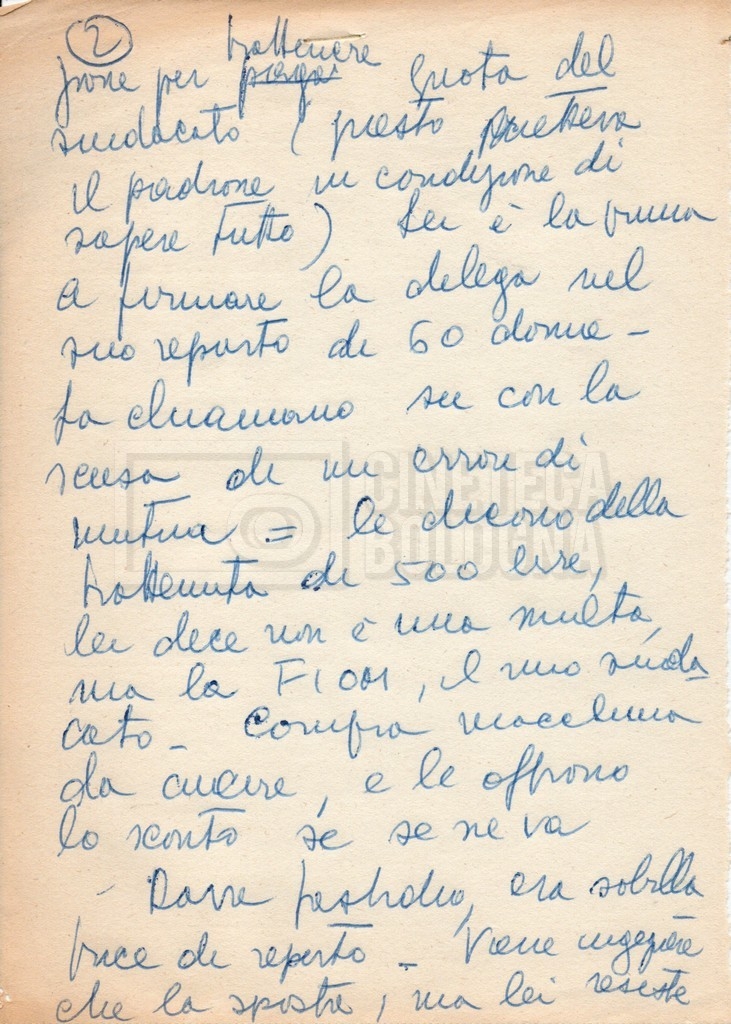 2
trattenere
zione per paga quota del
sindacato (questo metteva
il padrone in condizione di
sapere tutto) Lei è la prima
a firmare la delega nel
suo reparto di 60 donne -
La chiamano su con la
scusa di un errore di
mutua = le dicono della
trattenuta di 500 lire,
lei dice non è una multa,
ma la FIOM, il mio sinda
cato - Compra macchina
da cucire, e le offrono
lo sconto se se ne va
- Dava fastidio, era sobilla
trice di reparto - Viene ingegnere
che la sposta, ma lei resiste
CINETECA
BOLOGNA